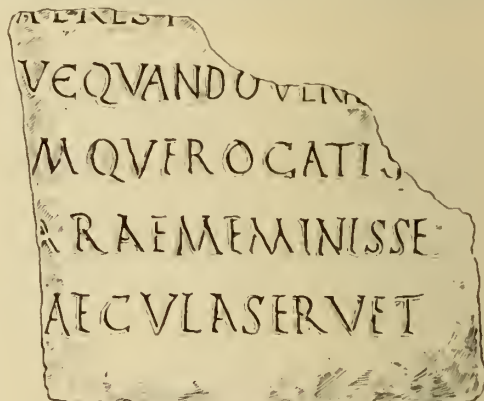 VEQVANDOVENI
MQVEROGATIS
RRAEMEMINISSE
AECVLASERVET